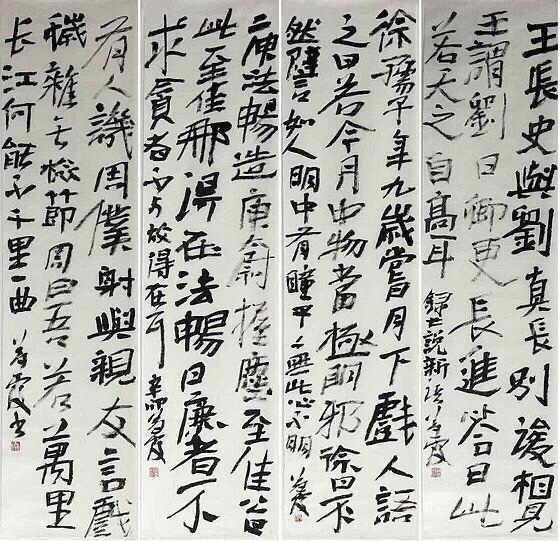 王長史與劉真長別後相見
王謂劉曰卿更長進答曰此
若天之自高耳 錄世說新语 霞
徐孺子年九歲嘗月下戲人語
之曰若令月中物當極明邪徐曰不
然譬如人眼中有瞳子無此必不明 霞
庾法暢造庾尉握麈至佳
此至佳那得在法暢曰廉者不
求貪者不与故得在耳 辛卯 霞
有人譏周僕射與親友言戲
穢雜無檢節周曰吾若萬里
長江何能不千里一曲 霞书